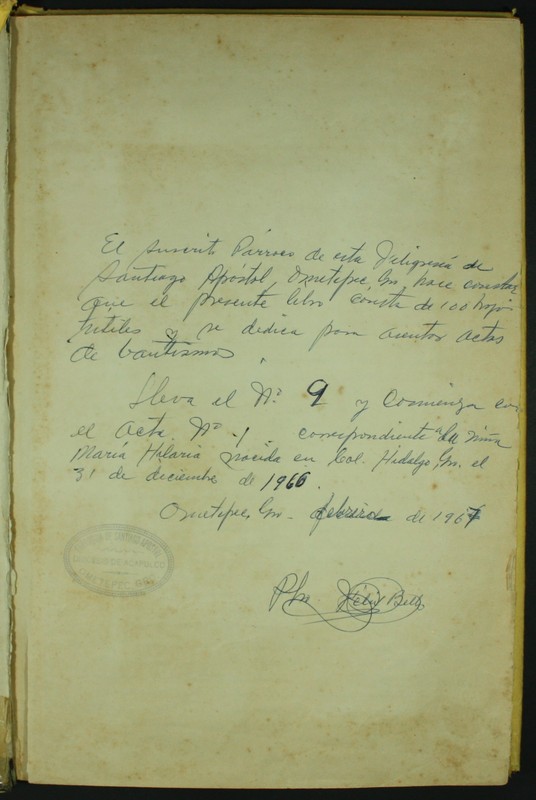 El suscrito Párroco de esta Feligresía de
Santiago Apóstol, Ometepec, Gro, hace constar
que el presente libro consta de 100 hojas
útiles y se dedica para asentar actas
de bautismos.
Lleva el Nº 9 y comienza con
el Acta Nº 1 correspondiente a La niña
María Hilaria nacida en Col. Hidalgo Gro. el
31 de diciembre de 1966.
Ometepec, Gro - febrero de 1967
OMETEPEC, GRO.
Pbro